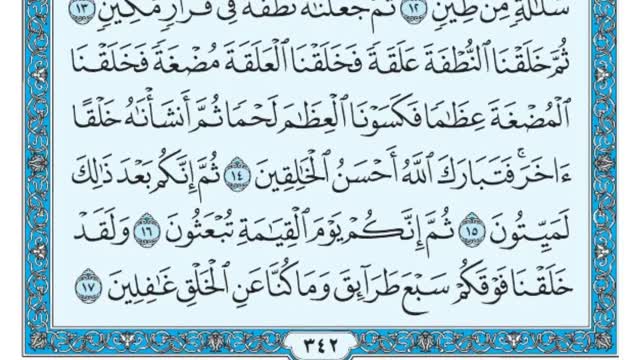 سُلَٰلَةٍ مِّن طِينٍ ١٢ ثُمَّ جَعَلْنَٰهُ نُطْفَةً فِى قَرَارٍ مَّكِينٍ ١٣
ثُمَّ خَلَقْنَا ٱلنُّطْفَةَ عَلَقَةً فَخَلَقْنَا ٱلْعَلَقَةَ مُضْغَةً فَخَلَقْنَا
ٱلْمُضْغَةَ عِظَٰمًا فَكَسَوْنَا ٱلْعِظَٰمَ لَحْمًا ثُمَّ أَنشَأْنَٰهُ خَلْقًا
ءَاخَرَ ۚ فَتَبَارَكَ ٱللَّهُ أَحْسَنُ ٱلْخَٰلِقِينَ ١٤ ثُمَّ إِنَّكُم بَعْدَ ذَٰلِكَ
لَمَيِّتُونَ ١٥ ثُمَّ إِنَّكُمْ يَوْمَ ٱلْقِيَٰمَةِ تُبْعَثُونَ ١٦ وَلَقَدْ
خَلَقْنَا فَوْقَكُمْ سَبْعَ طَرَآئِقَ وَمَا كُنَّا عَنِ ٱلْخَلْقِ غَٰفِلِينَ ١٧
٣٤٢